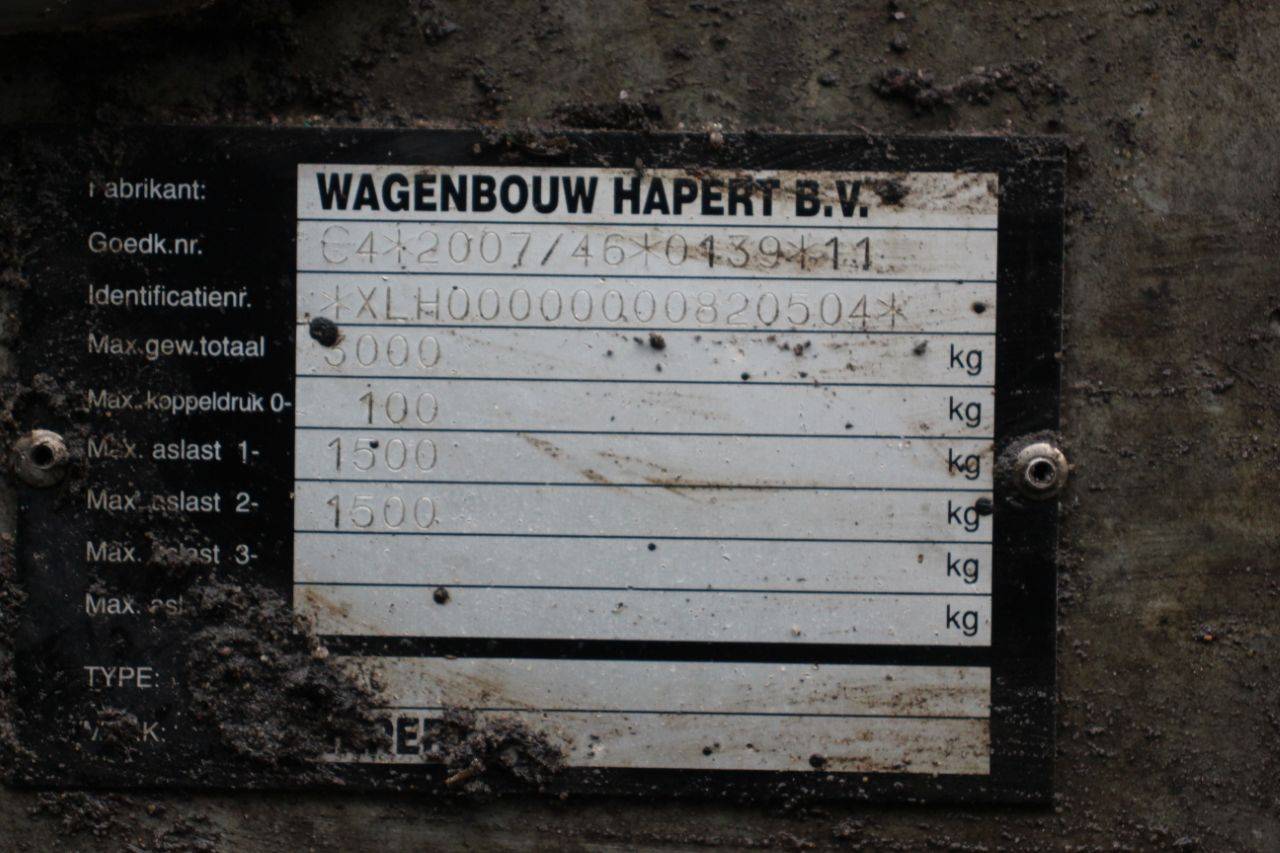 Fabrikant: WAGENBOUW HAPERT B.V.
Goedk.nr. e4*2007/46*0139*11
Identificatienr. *XLH00000000820504*
Max.gew.totaal 3000 kg
Max. koppeldruk 0- 100 kg
Max. aslast 1- 1500 kg
Max. aslast 2- 1500 kg
Max. aslast 3- kg
Max. kg
TYPE: